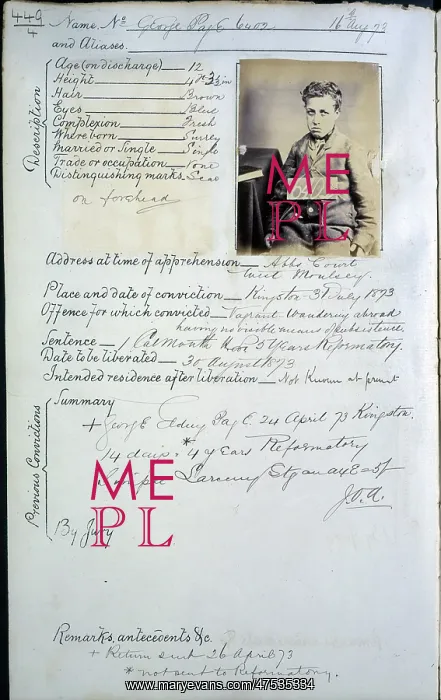 449
4
Name, No. George Page 6402 16th Aug 73
and Aliases.
Description
Age (on discharge) 12
Height 4 ft 3½ in
Hair Brown
Eyes Blue
Complexion Fresh
Where born Surrey
Married or Single Single
Trade or occupation None
Distinguishing marks Scar
on forehead
Address at time of apprehension Abbs Court
West Moulsey.
Place and date of conviction Kingston 31 July 1873
Offence for which convicted Vagrant Wandering abroad
having no visible means of subsistence
Sentence 1 Cal Month & 5 Years Reformatory.
Date to be liberated 30 August 73
Intended residence after liberation Not Known at present
Previous Convictions
Summary
+ George Page. 24 April 73 Kingston.
14 days * 4 Years Reformatory
Larceny
By Jury
Remarks, antecedents &c.
+ Return sent 26 April 73
* not sent to Reformatory.
ME
PL
ME
PL
www.maryevans.com/47535334